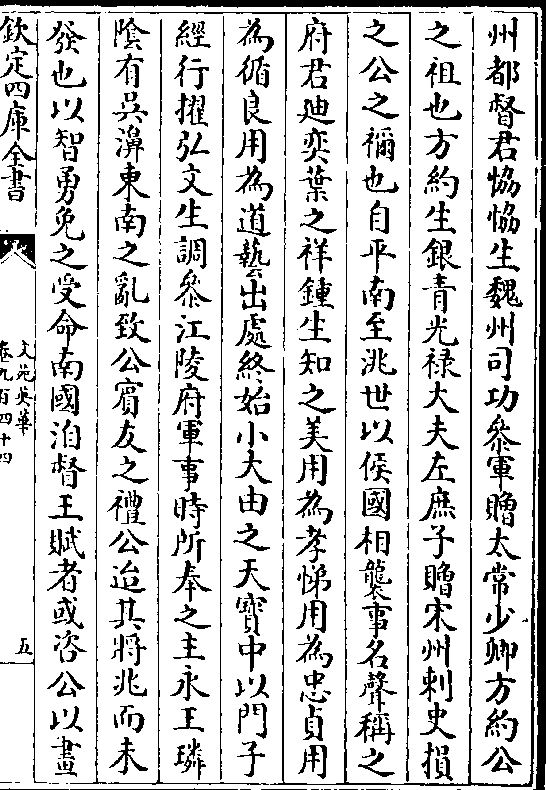 州都督君恊恊生魏州司功叅軍贈太常少卿方約公
之祖也方約生銀青光禄大夫左庶子贈宋州刺史損
之公之禰也自平南至洮世以侯國相襲事名聲稱之
府君廸奕葉之祥鍾生知之美用為孝悌用為忠貞用
為循良用為道藝出處終始小大由之天寳中以門子
經行擢弘文生調叅江陵府軍事時所奉之主永王璘
陰有吳濞東南之亂致公賔友之禮公迨其將兆而未
發也以智勇免之受命南國洎督王賦者或咨公以畫
欽定四庫全書
文苑英華
卷九百四十四
五